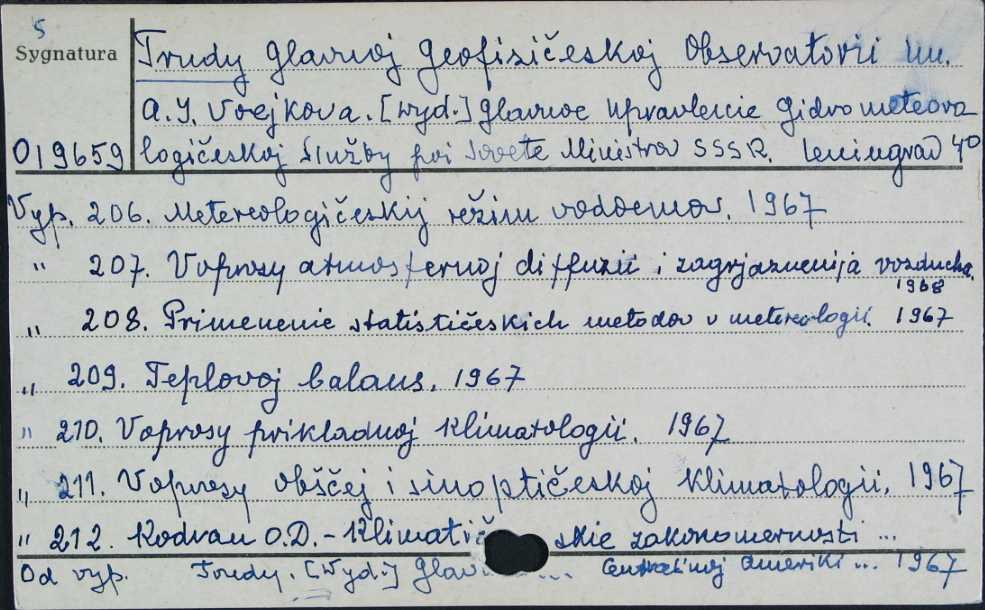 5
Sygnatura
Trudy Glavnoj Geofizičeskoj Observatorii im.
A.I. Voejkova. [Wyd.] Glavnoe Upravlenie Gidrometeoro
019659 logičeskoj Služby pri Sovete Ministrov SSSR. Leningrad 40
Vyp. 206. Metereologičeskij režim vodoemov. 1967
" 207. Voprosy atmosfernoj diffuzii i zagrjaznenija vozducha.
1968
" 208. Primenenie statističeskich metodov v metereologii. 1967
" 209. Teplovoj balans. 1967
" 210. Voprosy prikladnoj klimatologii. 1967
" 211. Voprosy obščej i sinoptičeskoj klimatologii. 1967
" 212. Kodrau O.D. - Klimatič skie zakonomernosti ...
Od vyp. Trudy. [Wyd.] Glav ... Central'noj Ameriki ... 1967